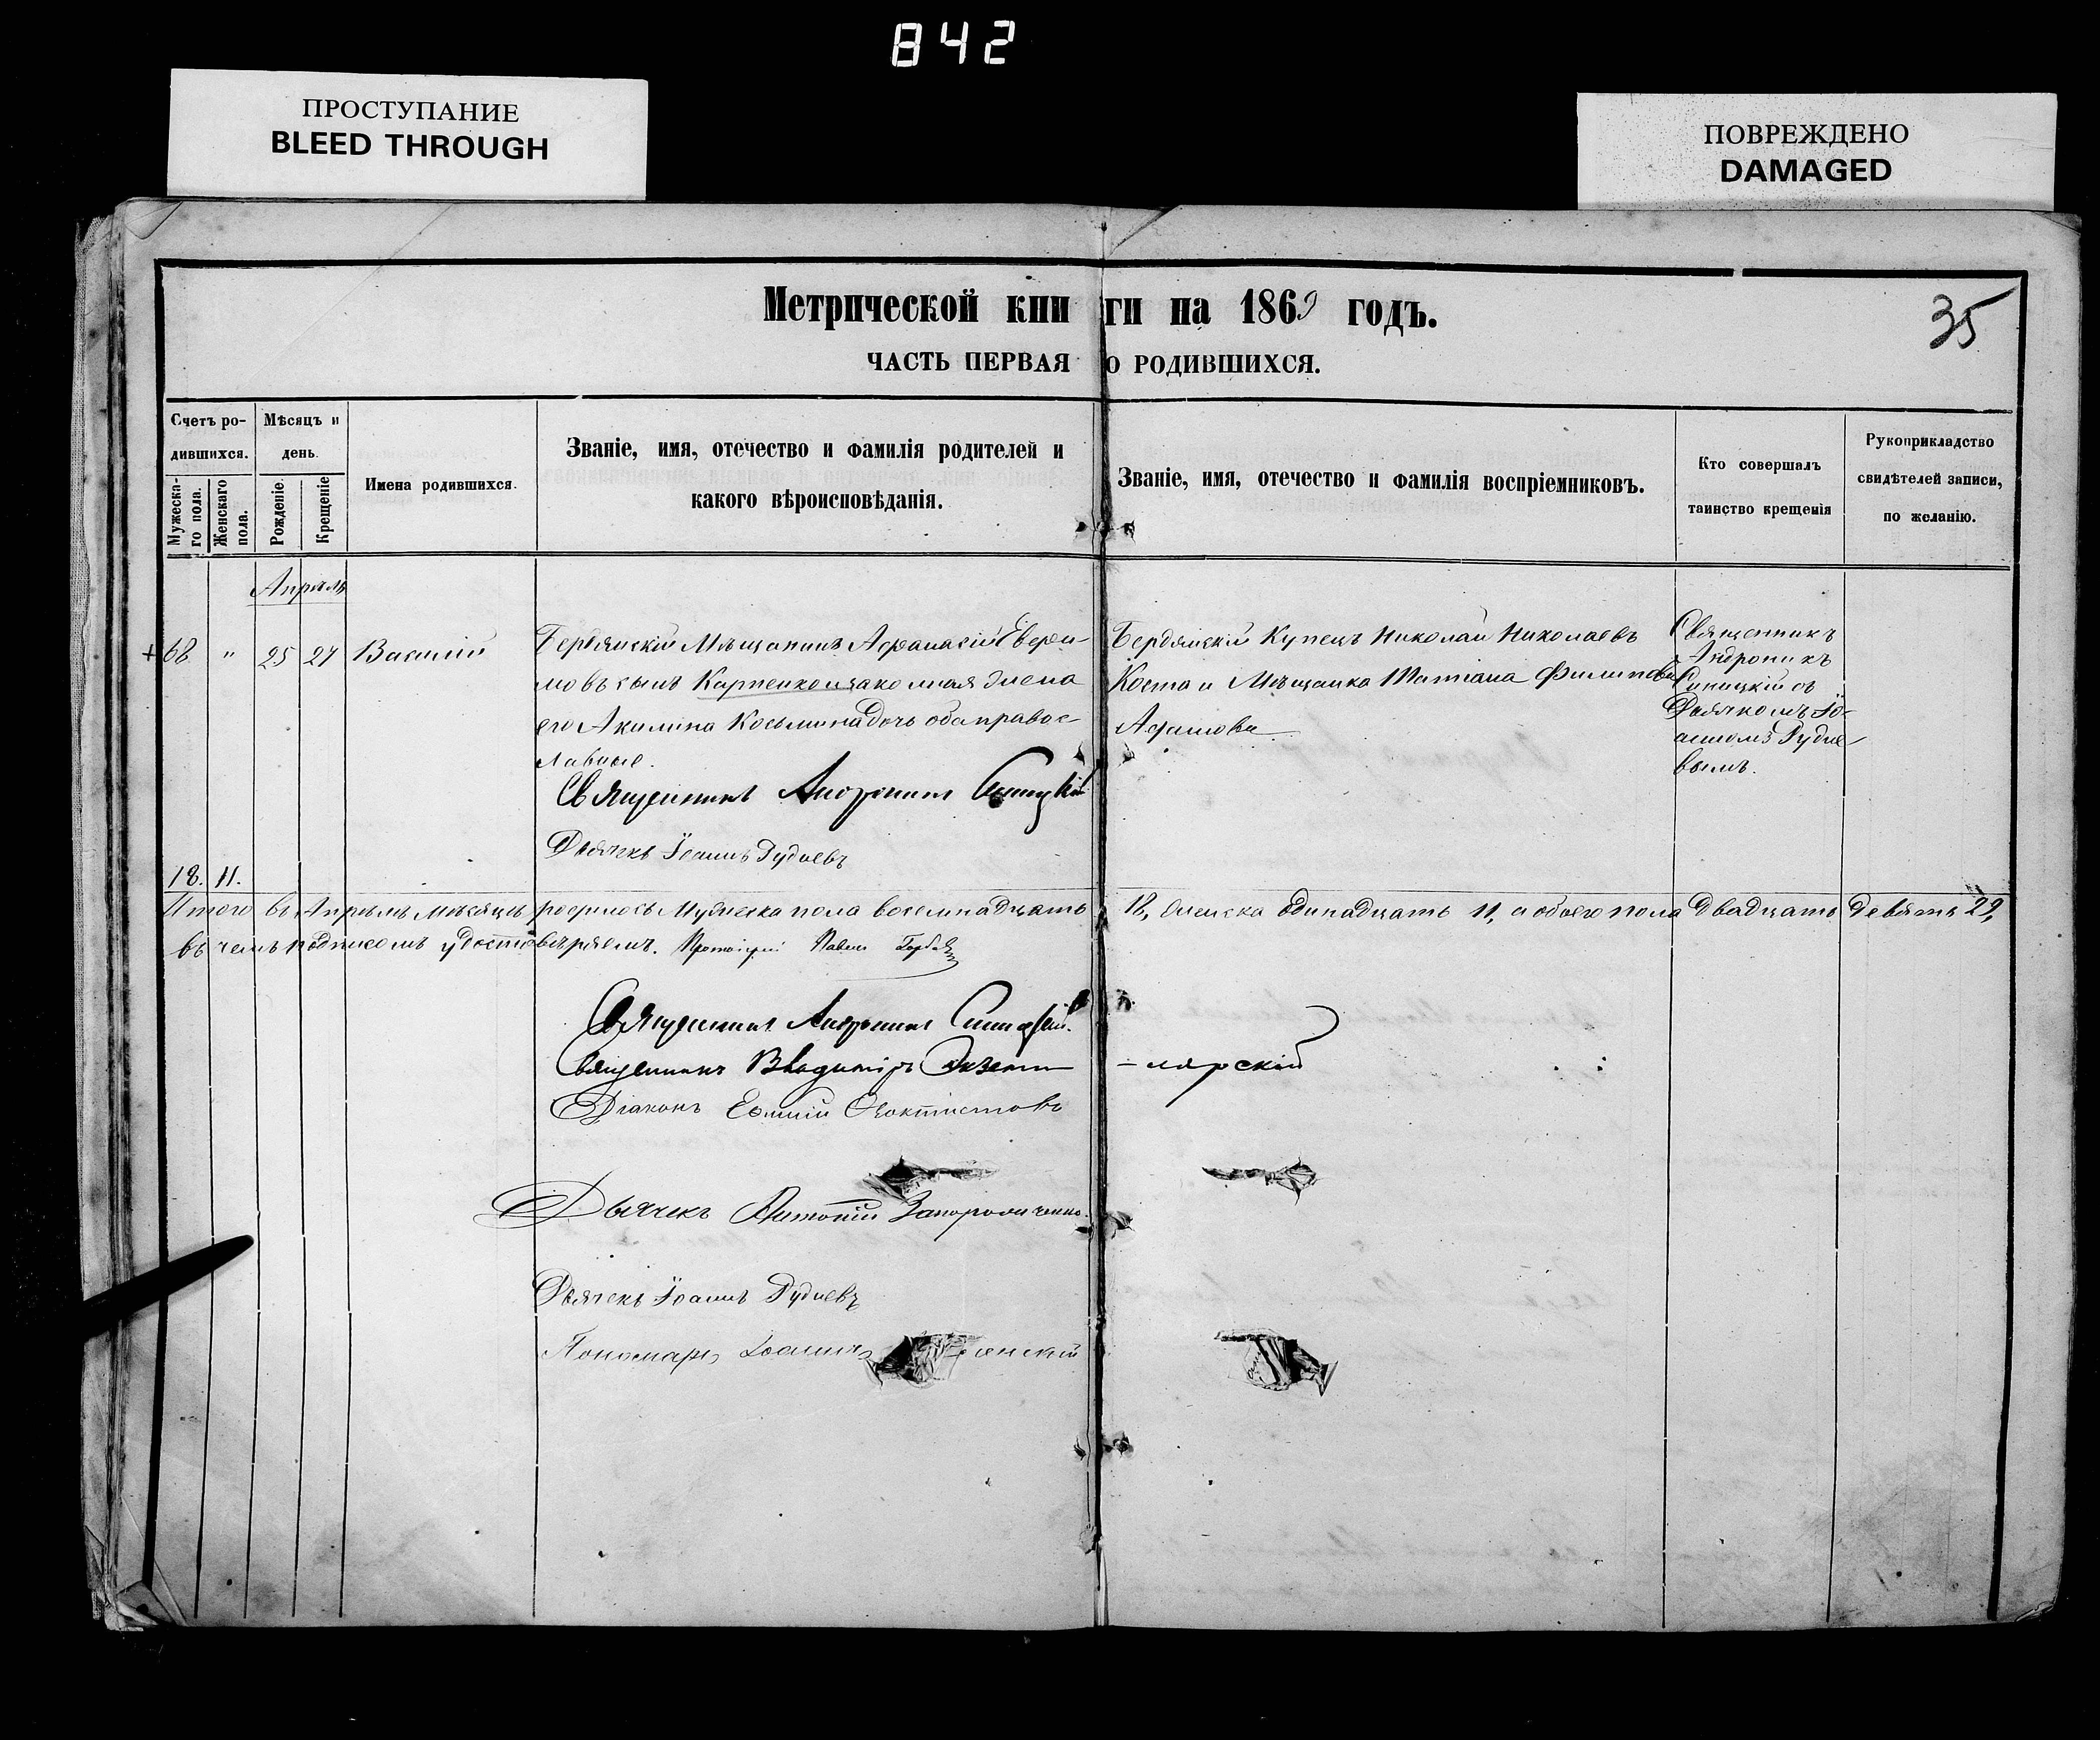 842
ПРОСТУПАНИЕ
BLEED THROUGH
ПОВРЕЖДЕНО
DAMAGED
Метрической книги на 1869 годъ.
35
ЧАСТЬ ПЕРВАЯ О РОДИВШИХСЯ.
Счетъ родившихся.
Мужескаго пола.
Женскаго пола.
Мѣсяцъ и день.
Рожденіе.
Крещеніе
Имена родившихся.
Званіе, имя, отечество и фамилія родителей и
какого вѣроисповѣданія.
Званіе, имя, отечество и фамилія воспріемниковъ.
Кто совершалъ
таинство крещенія
Рукоприкладство
свидѣтелей записи,
по желанію.
Апрѣль
+68 " 25 27 Василій
Бердянскій Мѣщанинъ Афанасій Ефи-
мовъ сынъ Карпенко и законная жена
его Акилина Косьмина дочь оба правос-
лавные.
Бердянскій Купецъ Николай Николаевъ
Коста и Мѣщанка Татіана Филипова
Священникъ
Андроникъ
Синицкій съ
Дьячкомъ Іо-
анномъ Рудне-
вымъ.
Священникъ Андроникъ Синицкій
Дьячекъ Іоаннъ Рудневъ
18. 11.
Итого въ Апрѣлѣ мѣсяцѣ родилось Мужеска пола восемнадцать 18, женска одинадцать 11, а обоего пола двадцать девять 29,
въ чемъ подписомъ удостовѣряемъ. Протоіерей Павелъ
Священникъ Андроникъ Синицкій.
Священникъ Владиміръ Экземплярскій
Діаконъ Феоктистовъ
Дьячекъ Антоній Запорожченко.
Дьячекъ Іоаннъ Рудневъ
Пономарь Іоаннъ